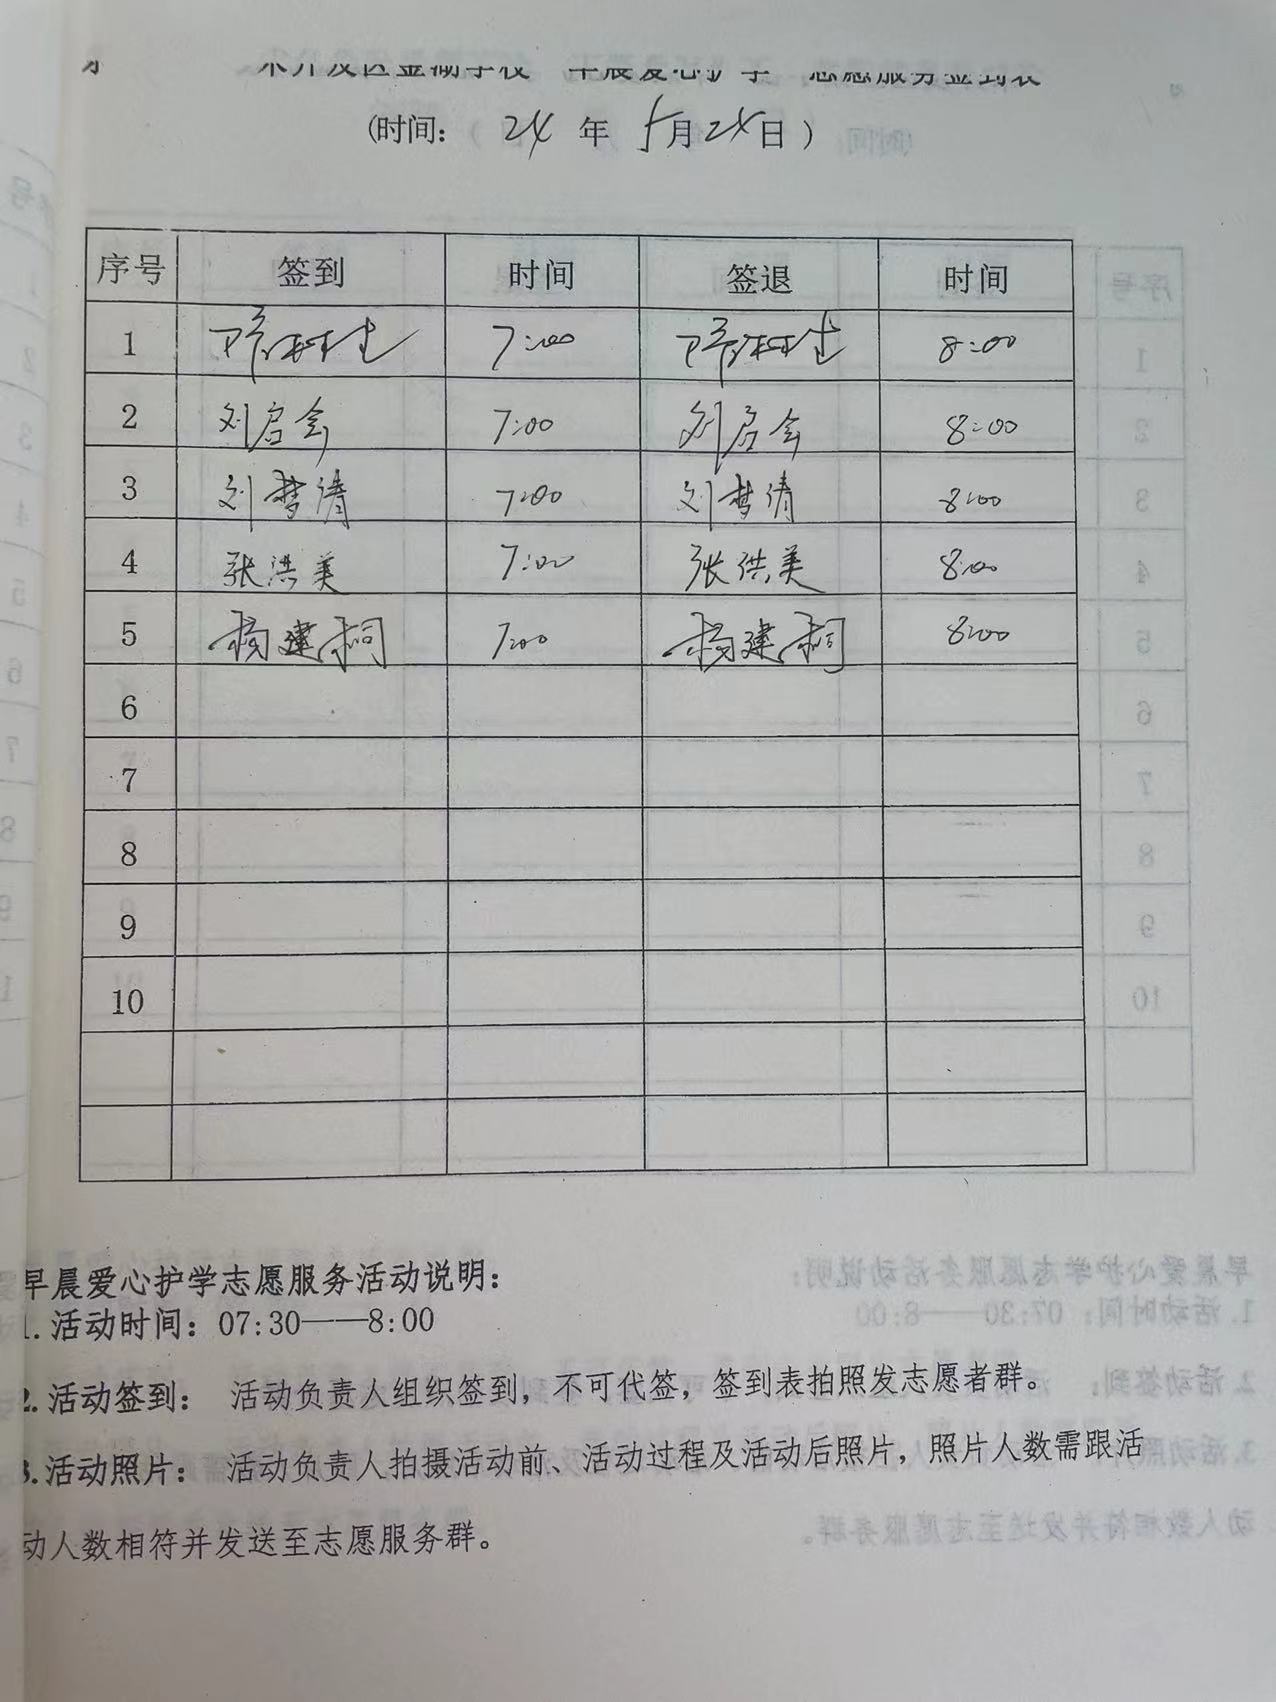 开发区金湖学校“早晨爱心护学”志愿服务签到表
(时间: 24 年 5月24日 )
序号 签到 时间 签退 时间
1 7:00 8:00
2 刘启会 7:00 刘启会 8:00
3 刘梦清 7:00 刘梦清 8:00
4 张洪美 7:00 张洪美 8:00
5 杨建祠 7:00 杨建祠 8:00
6
7
8
9
10
早晨爱心护学志愿服务活动说明:
1.活动时间: 07:30——8:00
2.活动签到: 活动负责人组织签到, 不可代签, 签到表拍照发志愿者群。
3.活动照片: 活动负责人拍摄活动前、活动过程及活动后照片, 照片人数需跟活
动人数相符并发送至志愿服务群。